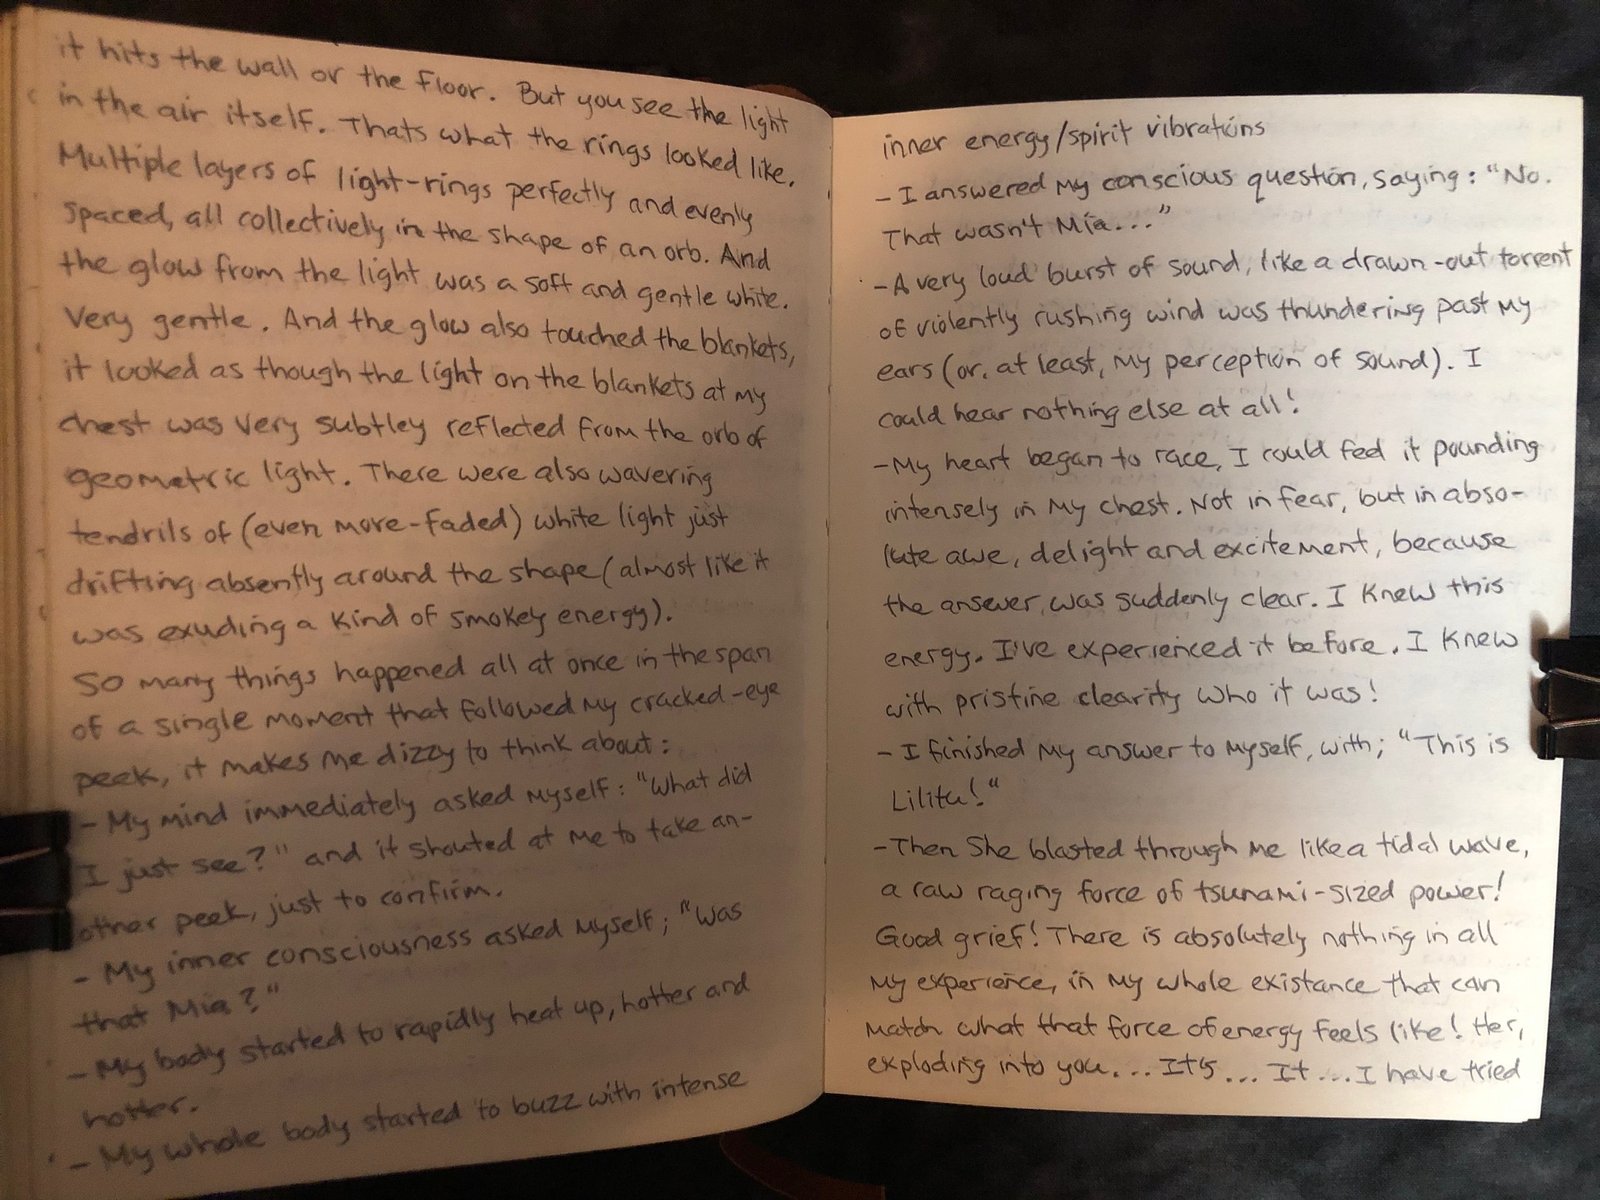 it hits the wall or the floor. But you see the light
in the air itself. Thats what the rings looked like.
Multiple layers of light-rings perfectly and evenly
spaced, all collectively in the shape of an orb. And
the glow from the light was a soft and gentle white.
Very gentle. And the glow also touched the blankets,
it looked as though the light on the blankets at my
chest was very subtley reflected from the orb of
geometric light. There were also wavering
tendrils of (even more-faded) white light just
drifting absently around the shape (almost like it
was exuding a kind of smokey energy).
So many things happened all at once in the span
of a single moment that followed my cracked-eye
peek, it makes me dizzy to think about:
- My mind immediately asked myself: "What did
I just see?" and it shouted at me to take an-
other peek, just to confirm.
- My inner consciousness asked myself; "Was
that Mia?"
- My body started to rapidly heat up, hotter and
hotter.
- My whole body started to buzz with intense
inner energy/spirit vibrations
- I answered my conscious question, saying: "No.
That wasn't Mia..."
- A very loud burst of sound, like a drawn-out torrent
of violently rushing wind was thundering past my
ears (or, at least, my perception of sound). I
could hear nothing else at all!
- My heart began to race, I could feel it pounding
intensely in my chest. Not in fear, but in abso-
lute awe, delight and excitement, because
the answer was suddenly clear. I knew this
energy. I've experienced it before. I knew
with pristine clearity who it was!
- I finished my answer to myself, with; "This is
Lilitu!"
- Then She blasted through me like a tidal wave,
a raw raging force of tsunami-sized power!
Good grief! There is absolutely nothing in all
my experience, in my whole existance that can
match what that force of energy feels like! Her,
exploding into you... It's... It... I have tried